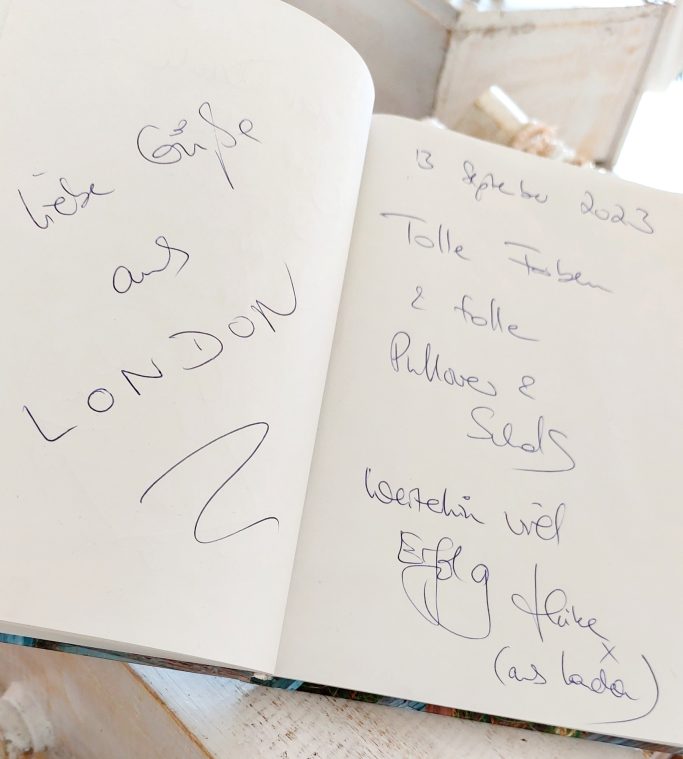 Liebe Grüße
aus
LONDON
13 September 2023
Tolle Farben
& tolle
Pullover &
weiterhin viel
Erfolg
(aus London)